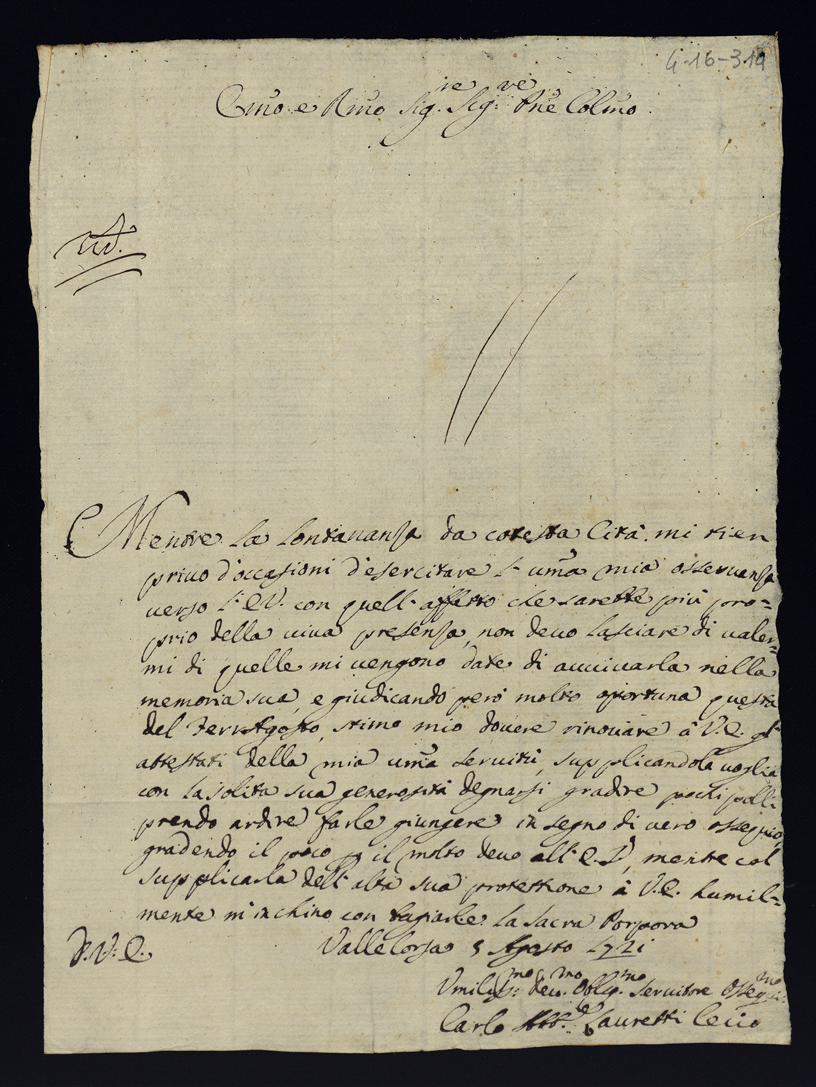 4-16-314
Em̃o e Rm̃o Sig.re Sig.re Pne Colm̃o
Mentre la lontananza da cotesta Città mi tien
privo d'occasioni d'esercitare l'um̃a mia osservanza
verso l'E.V. con quell'affetto che sarebbe più pro=
prio della viva presenza, non devo lasciare di valer=
mi di quelle mi vengono date di avvivarla nella
memoria sua, e giudicando però molto oportuna questa
del Ferr'Agosto, stimo mio dovere rinovare à V.E. gl'
attestati della mia um̃a servitù, supplicandola voglia
con la solita sua generosità degnarsi gradire pochi polli
prendo ardire farle giungere in segno di vero ossequio,
gradendo il poco p il molto devo all'E.V., mentre col
supplicarla dell'alta sua protettione à V.E. humil=
mente m'inchino con bagiarle la Sacra Porpora
D.V.E. Vallecorsa 5 Agosto 1721
Umiliss.mo Dev.mo Oblig.mo Servitore Osseq.mo
Carlo Lauretti